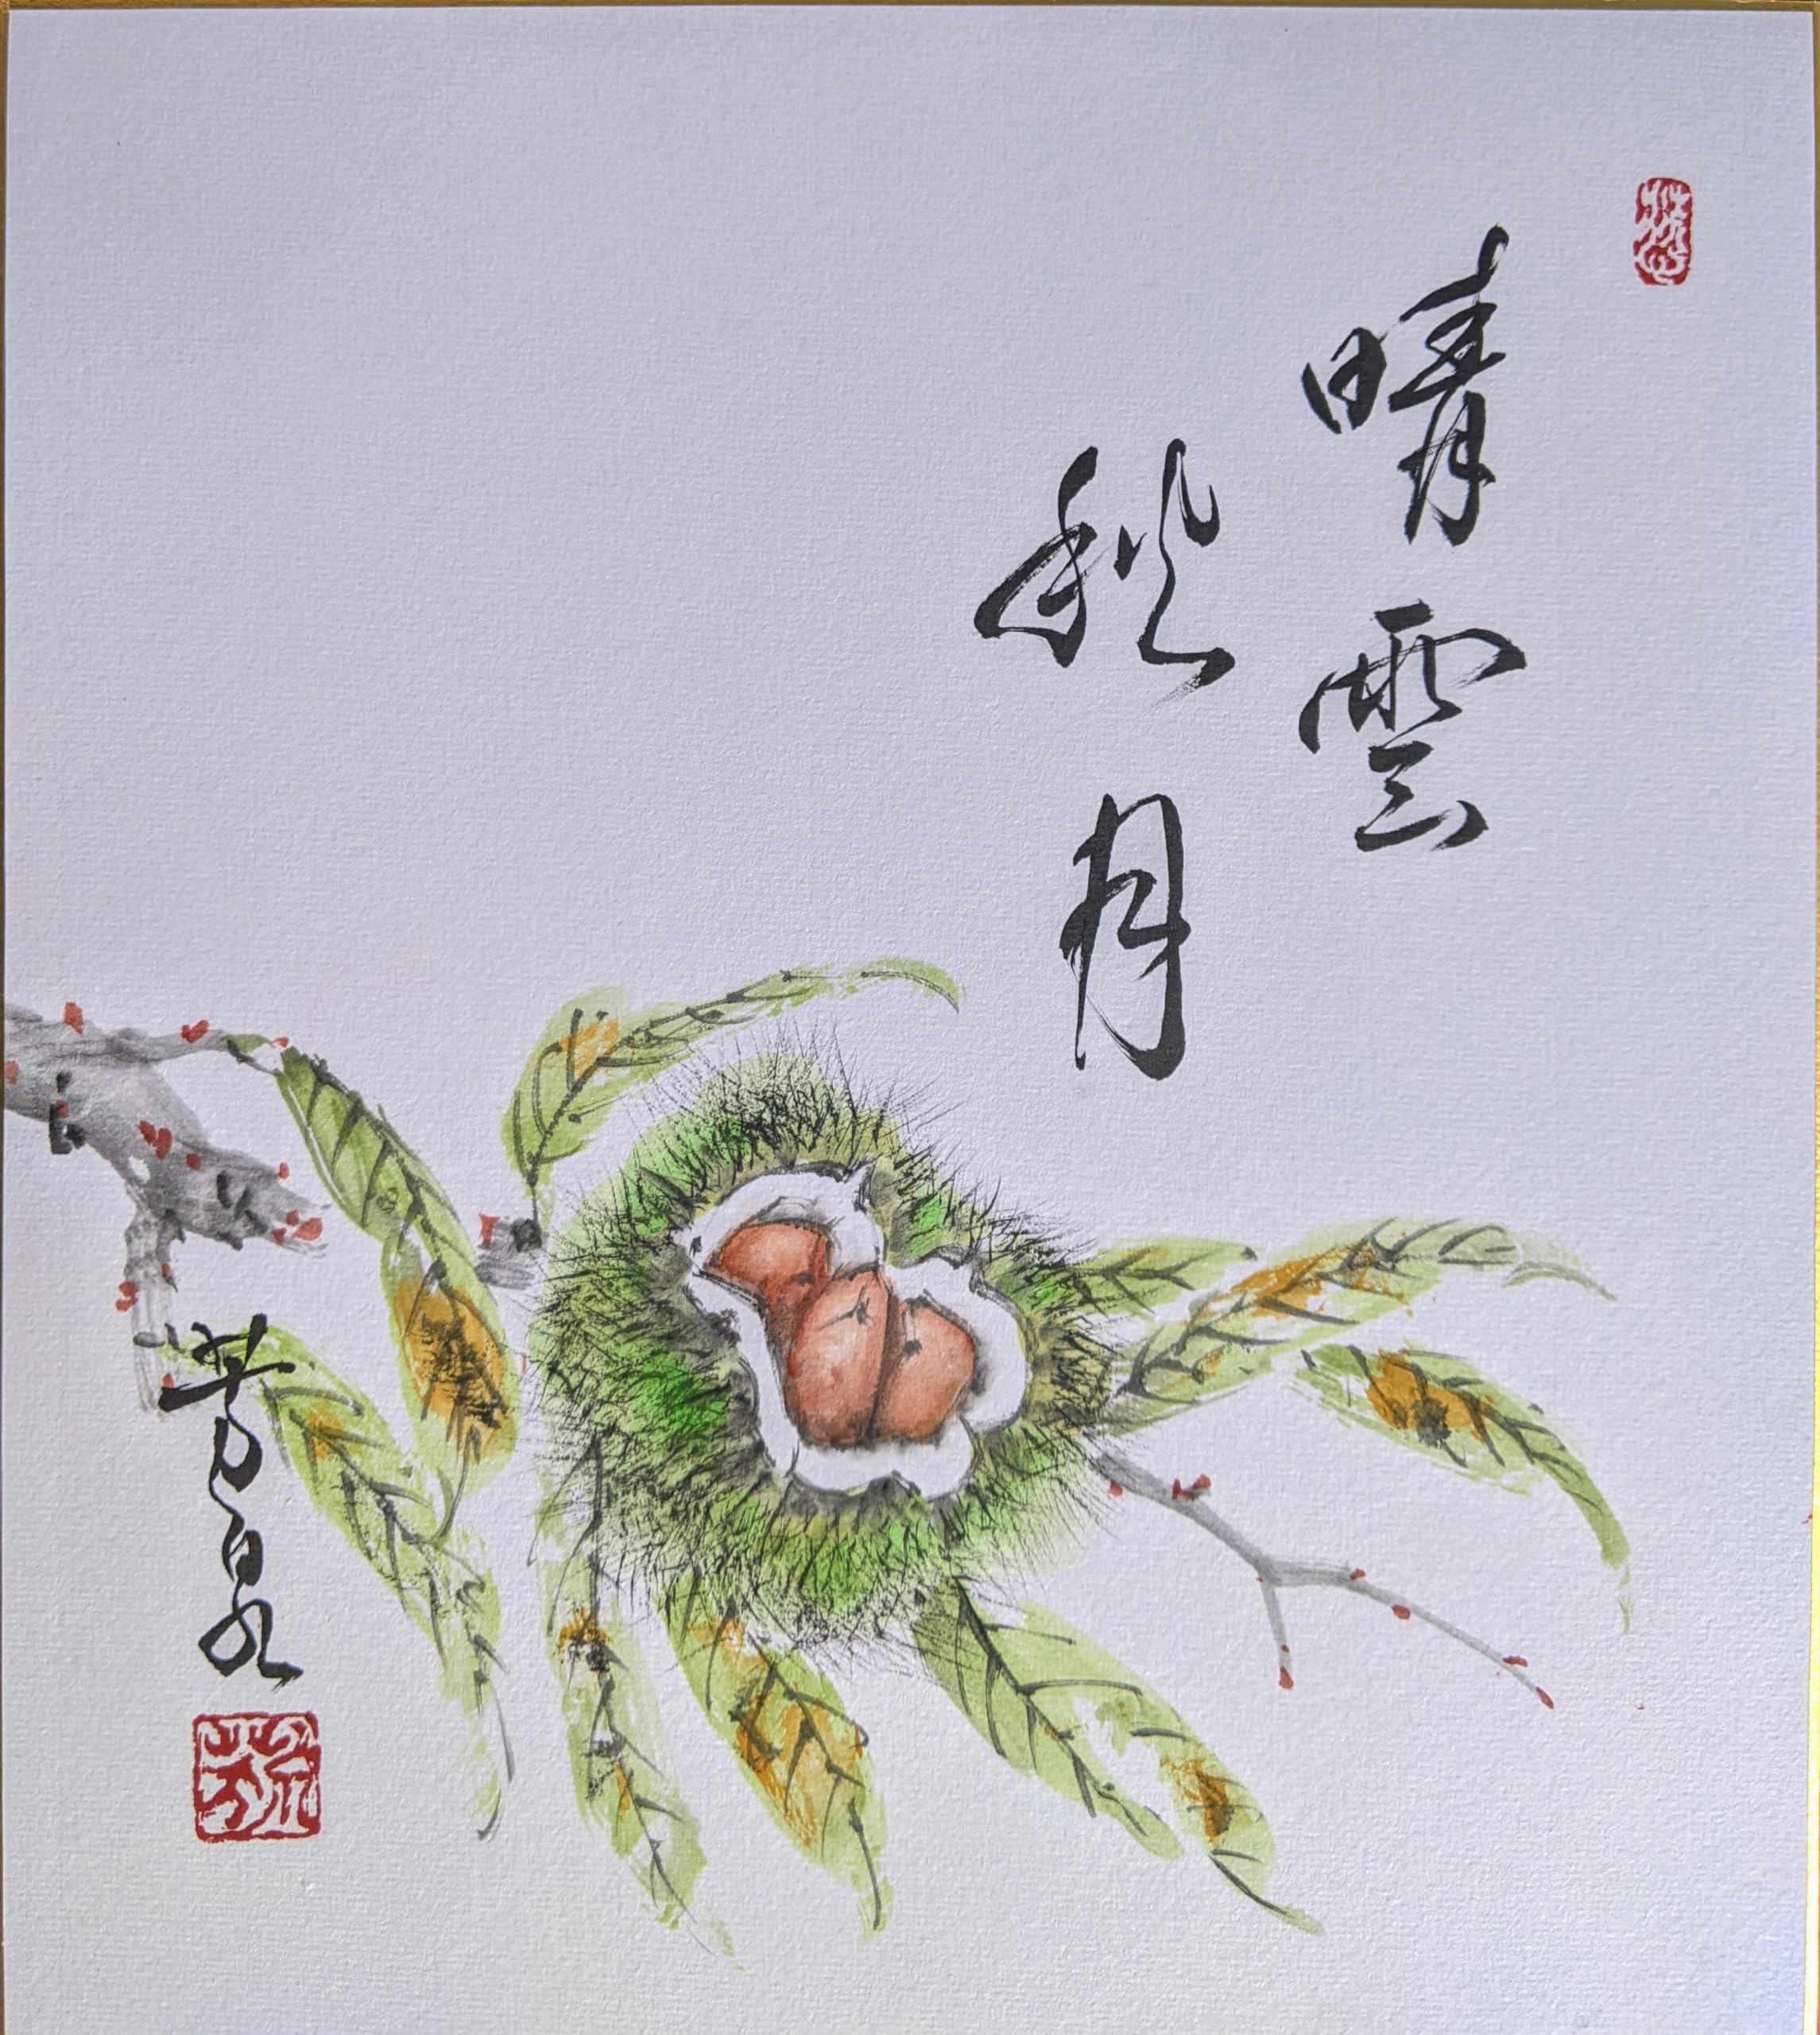 晴雲
秋月
芳泉